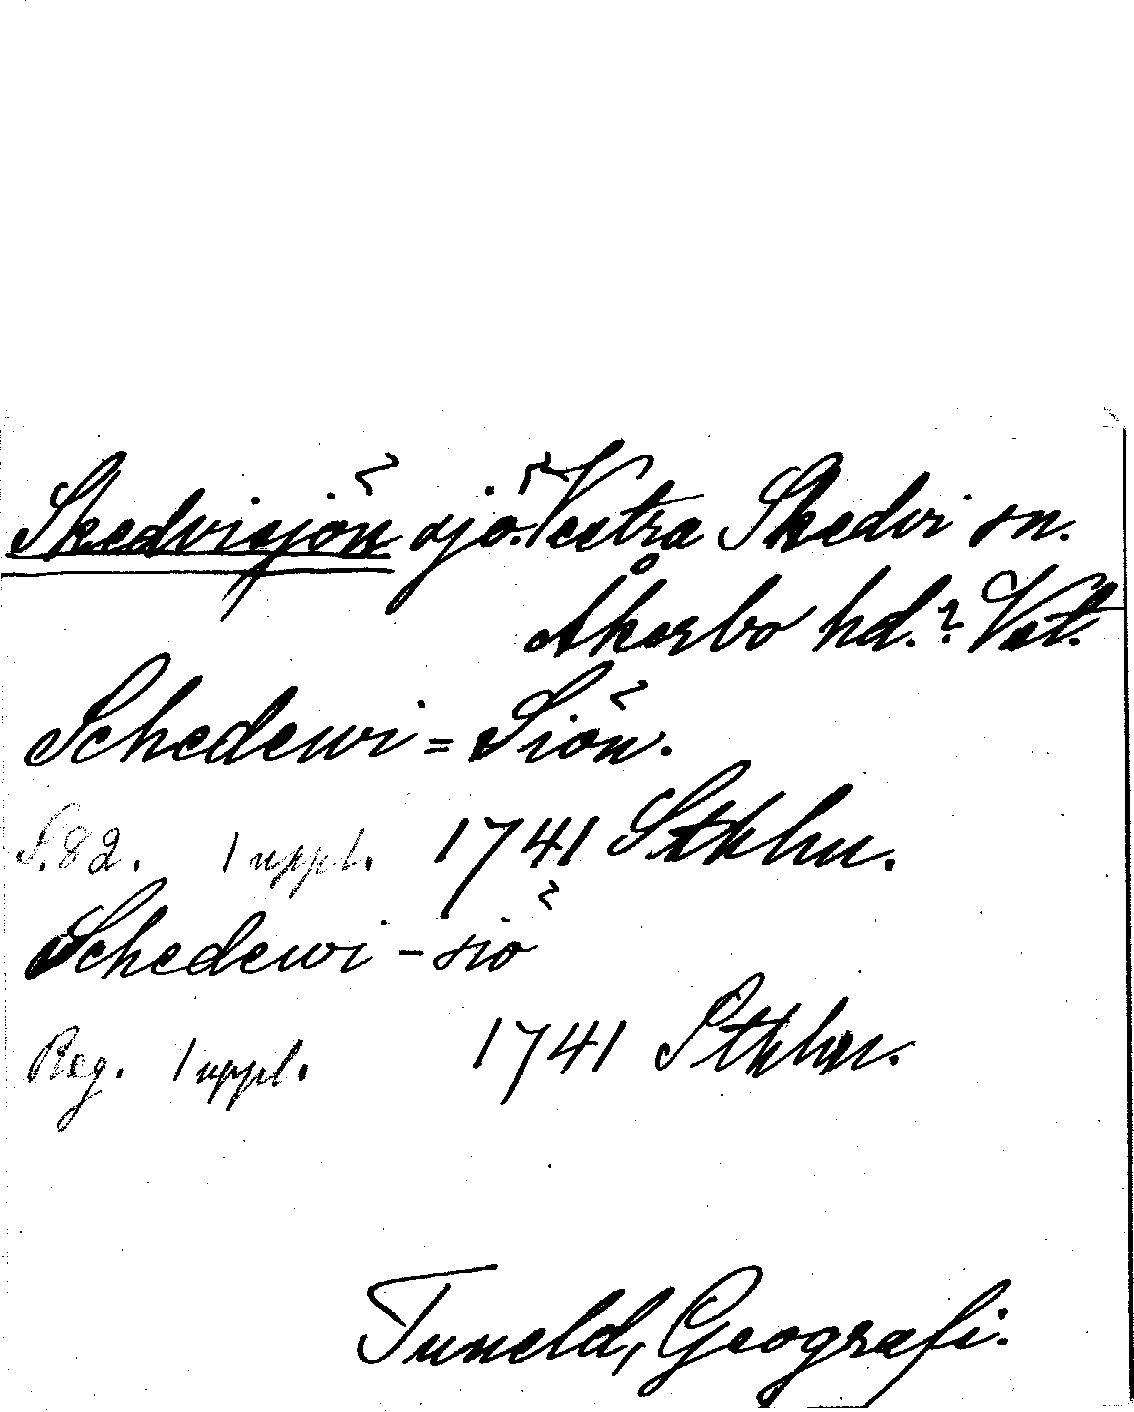 Skedvisjön sjö. Vestra Skedvi sn.
Åkerbo hd.? Vst.
Schedewi=Siön.
S. 82. 1 uppl. 1741 Stkhm.
Schedewi-siö
Reg. 1 uppl. 1741 Stkhm.
Tuneld, Geografi.